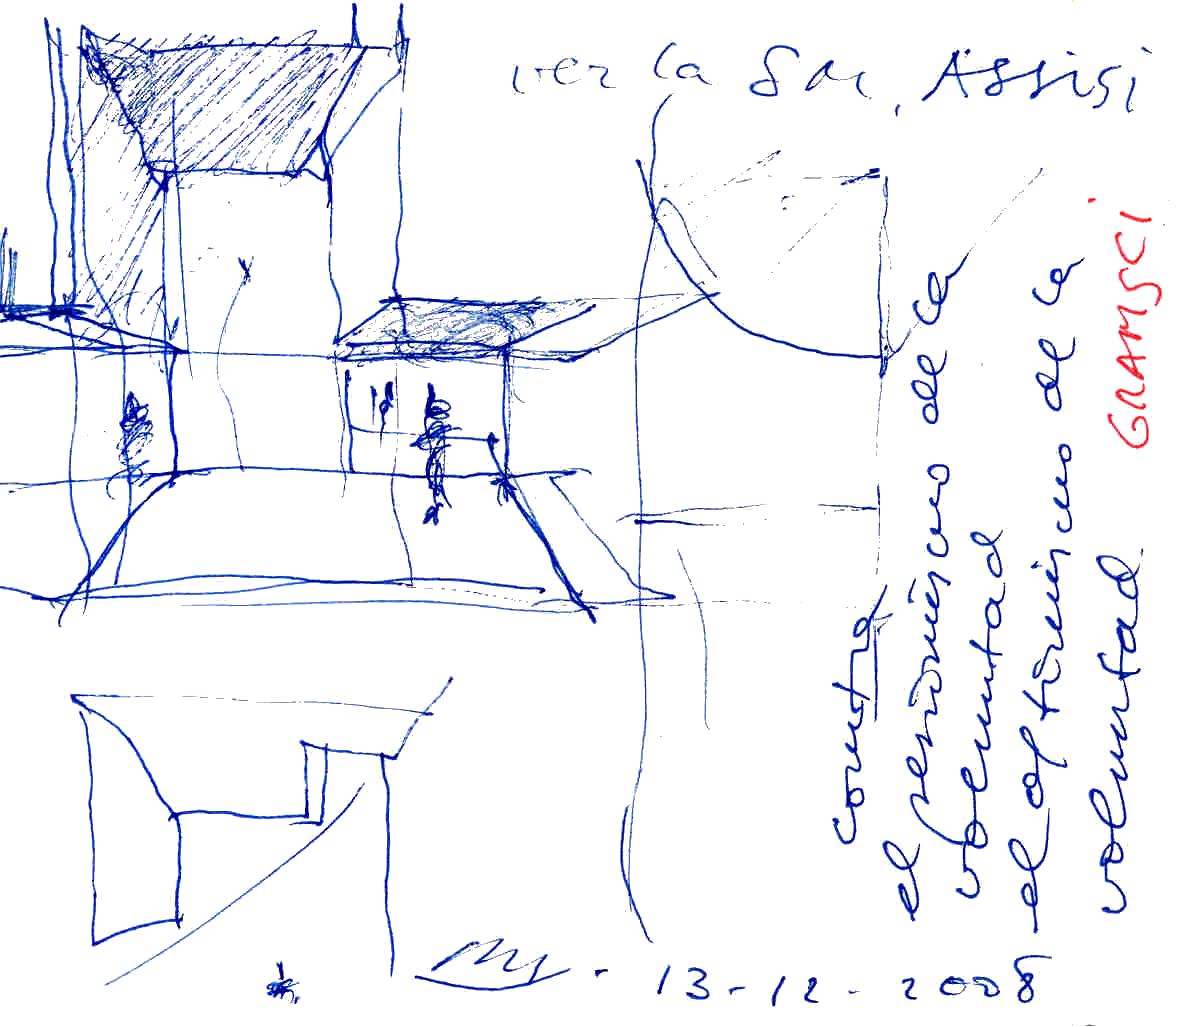 ver la Assisi
contra
el pesimismo de la
voluntad
el optimismo de la
voluntad. GRAMSCI
- 13-12-2008